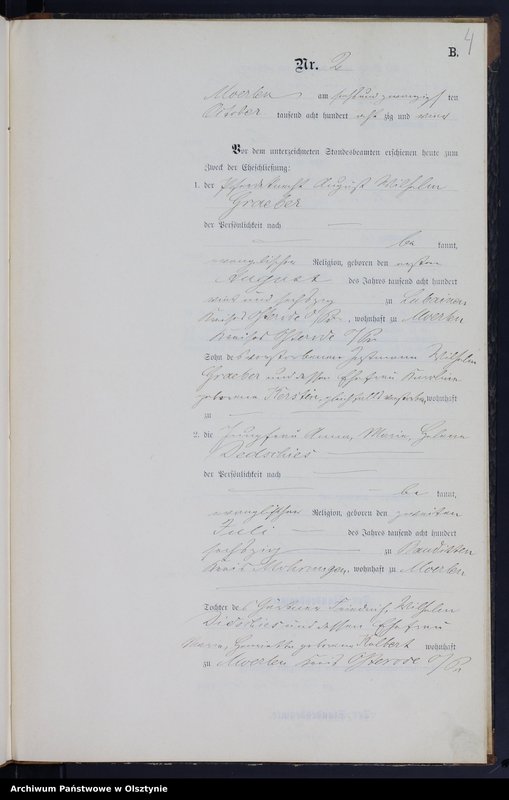 4
B.
Nr. 2
Moerlen am sechsundzwanzigsten
October tausend acht hundert achtzig und vier
Vor dem unterzeichneten Standesbeamten erschienen heute zum
Zweck der Eheschließung:
1. der Pferdeknecht August Wilhelm
Graeber
der Persönlichkeit nach
be kannt,
evangelischer Religion, geboren den ersten
August des Jahres tausend acht hundert
vier und sechszig zu
Kreises Osterode O/Pr. wohnhaft zu Moerlen
Kreises Osterode O/Pr
Sohn des verstorbenen Instmann Wilhelm
Graeber und dessen Ehefrau Karoline
geborene Kerstin, gleichfalls verstorben, wohnhaft
zu
2. die Jungfrau Anna, Maria, Helene
der Persönlichkeit nach
be kannt,
evangelischer Religion, geboren den zweiten
Juli des Jahres tausend acht hundert
sechszig zu Banditten
Kreis Mohrungen, wohnhaft zu Moerlen
Tochter des Gärtner Friedrich, Wilhelm
und dessen Ehefrau
geborene Kolbert wohnhaft
zu Moerlen Kreis Osterode O/Pr
Archiwum Państwowe w Olsztynie